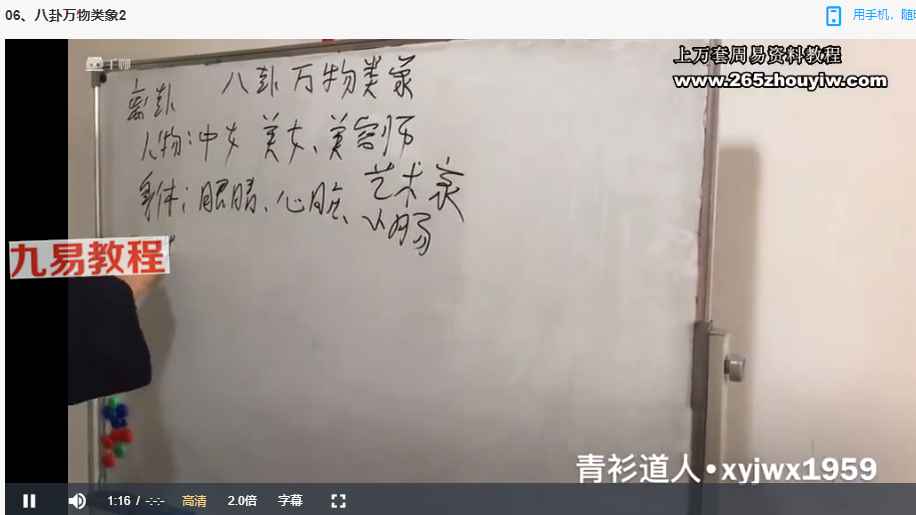 06、八卦万物类象2
用手机，随
上万套周易资料教程
www.265zhouyiw.com
离卦 八卦万物类象
人物：中女 美女、美容师
艺术家
身体：眼睛、心脏、小肠
九易教程
青衫道人•xyjwx1959
1:16 / -:-:- 高清 2.0倍 字幕